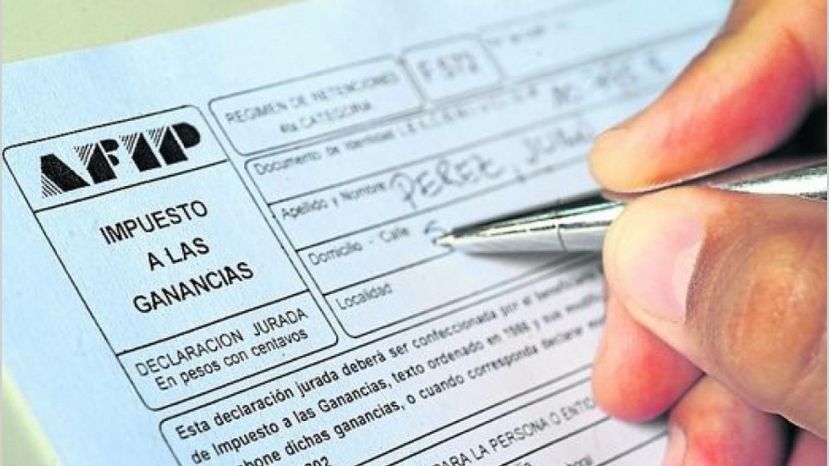 AFIP
IMPUESTO
A LAS
GANANCIAS
DECLARACION JURADA
En pesos con centavos
REGIMEN DE RETENCIONES
4ta CATEGORIA
F 572
Documento de Identidad
Apellido y Nombre PEREZ, JUAN
Domicilio - Calle S
Localidad
Esta declaración jurada deberá ser confeccionada por el beneficiario
de Impuesto a las Ganancias, texto ordenado en 1986 y sus modif
abone dichas ganancias, o cuando corresponda declarar
302
PARA LA PERSONA O ENTID